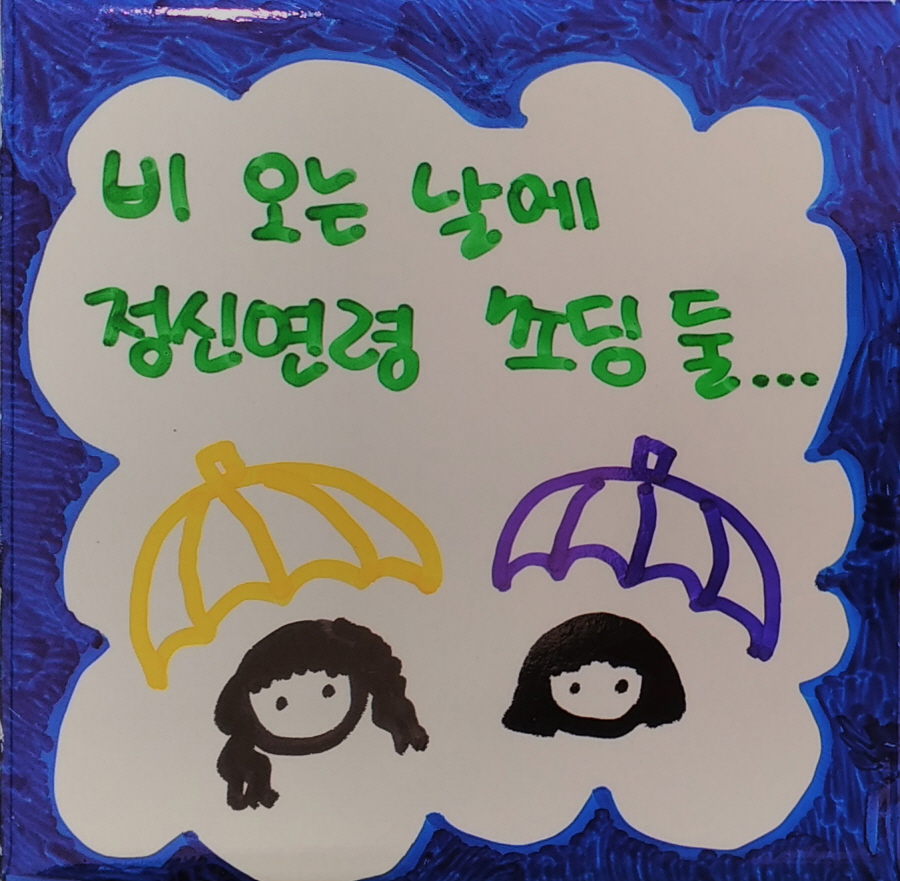 비 오는 날에
정신연령 쪼딩 둘...